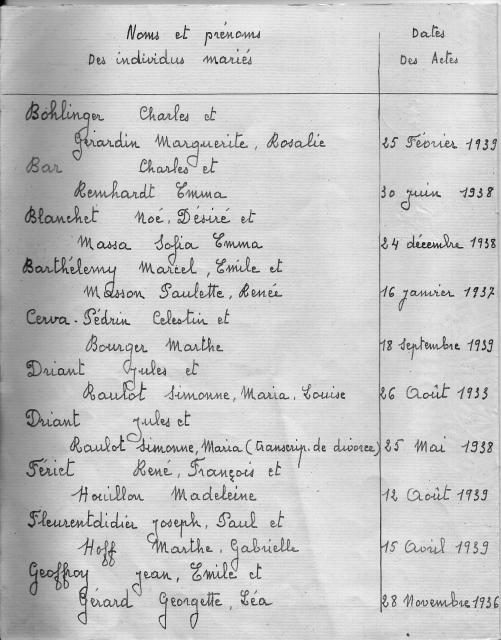 Noms et prénoms Dates
Des individus mariés Des Actes
Böhlinger Charles et
Gérardin Marguerite, Rosalie 25 Février 1939
Bar Charles et
Remhardt Emma 30 juin 1938
Blanchet Noé, Désiré et
Massa Sofia Emma 24 décembre 1938
Barthélemy Marcel, Emile et
Masson Paulette, Renée 16 janvier 1937
Cerva-Pédrin Celestin et
Bourger Marthe 18 Septembre 1939
Driant Jules et
Raulot Simonne, Maria, Louise 26 Août 1933
Driant Jules et
Raulot Simonne, Maria (transcrip. de divorce) 25 Mai 1938
Fériet René, François et
Houillon Madeleine 12 Août 1939
Fleurentdidier Joseph, Paul et
Hoff Marthe, Gabrielle 15 Avril 1939
Geoffroy Jean, Emile et
Gérard Georgette, Léa 28 Novembre 1936